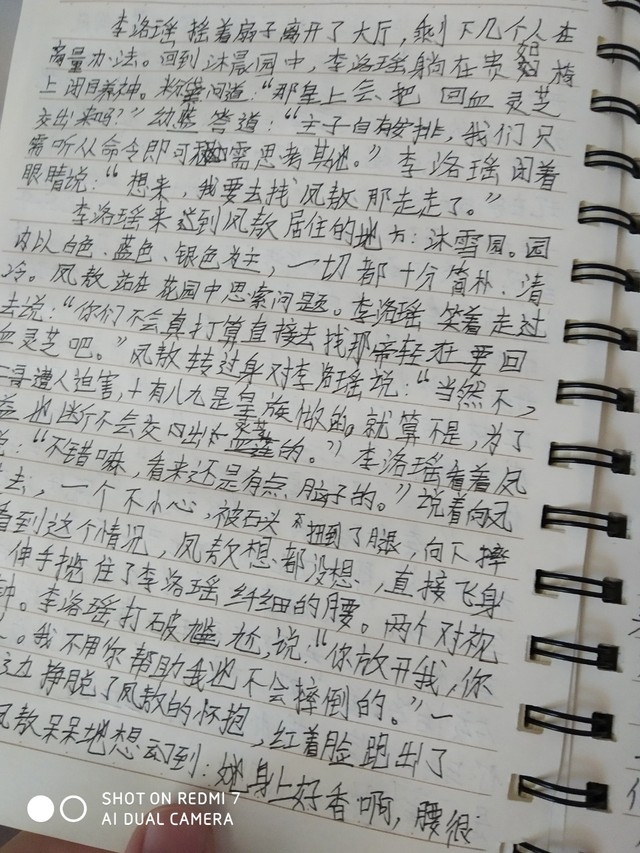 李洛瑶摇着扇子离开了大厅，剩下几个人在
商量办法。回到沐晨园中，李洛瑶躺在贵妃椅
上闭目养神。粉黛问道：“那皇上会把回血灵芝
交出来吗？”幼熊答道：“主子自有安排，我们只
需听从命令即可，需思考其他。”李洛瑶闭着
眼睛说：“想来，我要去找凤敖那走走了。”
李洛瑶来到凤敖居住的地方：沐雪园。园
内以白色、蓝色、银色为主，一切都十分简朴、清
冷。凤敖站在花园中思索问题。李洛瑶笑着走过
去说：“你们不会真打算直接去找那帝轻狂要回
血灵芝吧。”凤敖转过身对李洛瑶说：“当然不，
哥遭人迫害，十有八九是皇族做的。就算不是，为了
益他断不会交出灵芝的。”李洛瑶看着凤
说：“不错嘛，看来还是有点脑子的。”说着向凤
去，一个不小心，被石头扭到了腿，向下摔
看到这个情况，凤敖想都没想，直接飞身
伸手揽住了李洛瑶纤细的腰。两个对视
钟。李洛瑶打破尴尬，说：“你放开我，你
。我不用你帮助我也不会摔倒的。”一
边挣脱了凤敖的怀抱，红着脸跑出了
凤敖呆呆地想到：她身上好香啊，腰很
SHOT ON REDMI 7
AI DUAL CAMERA